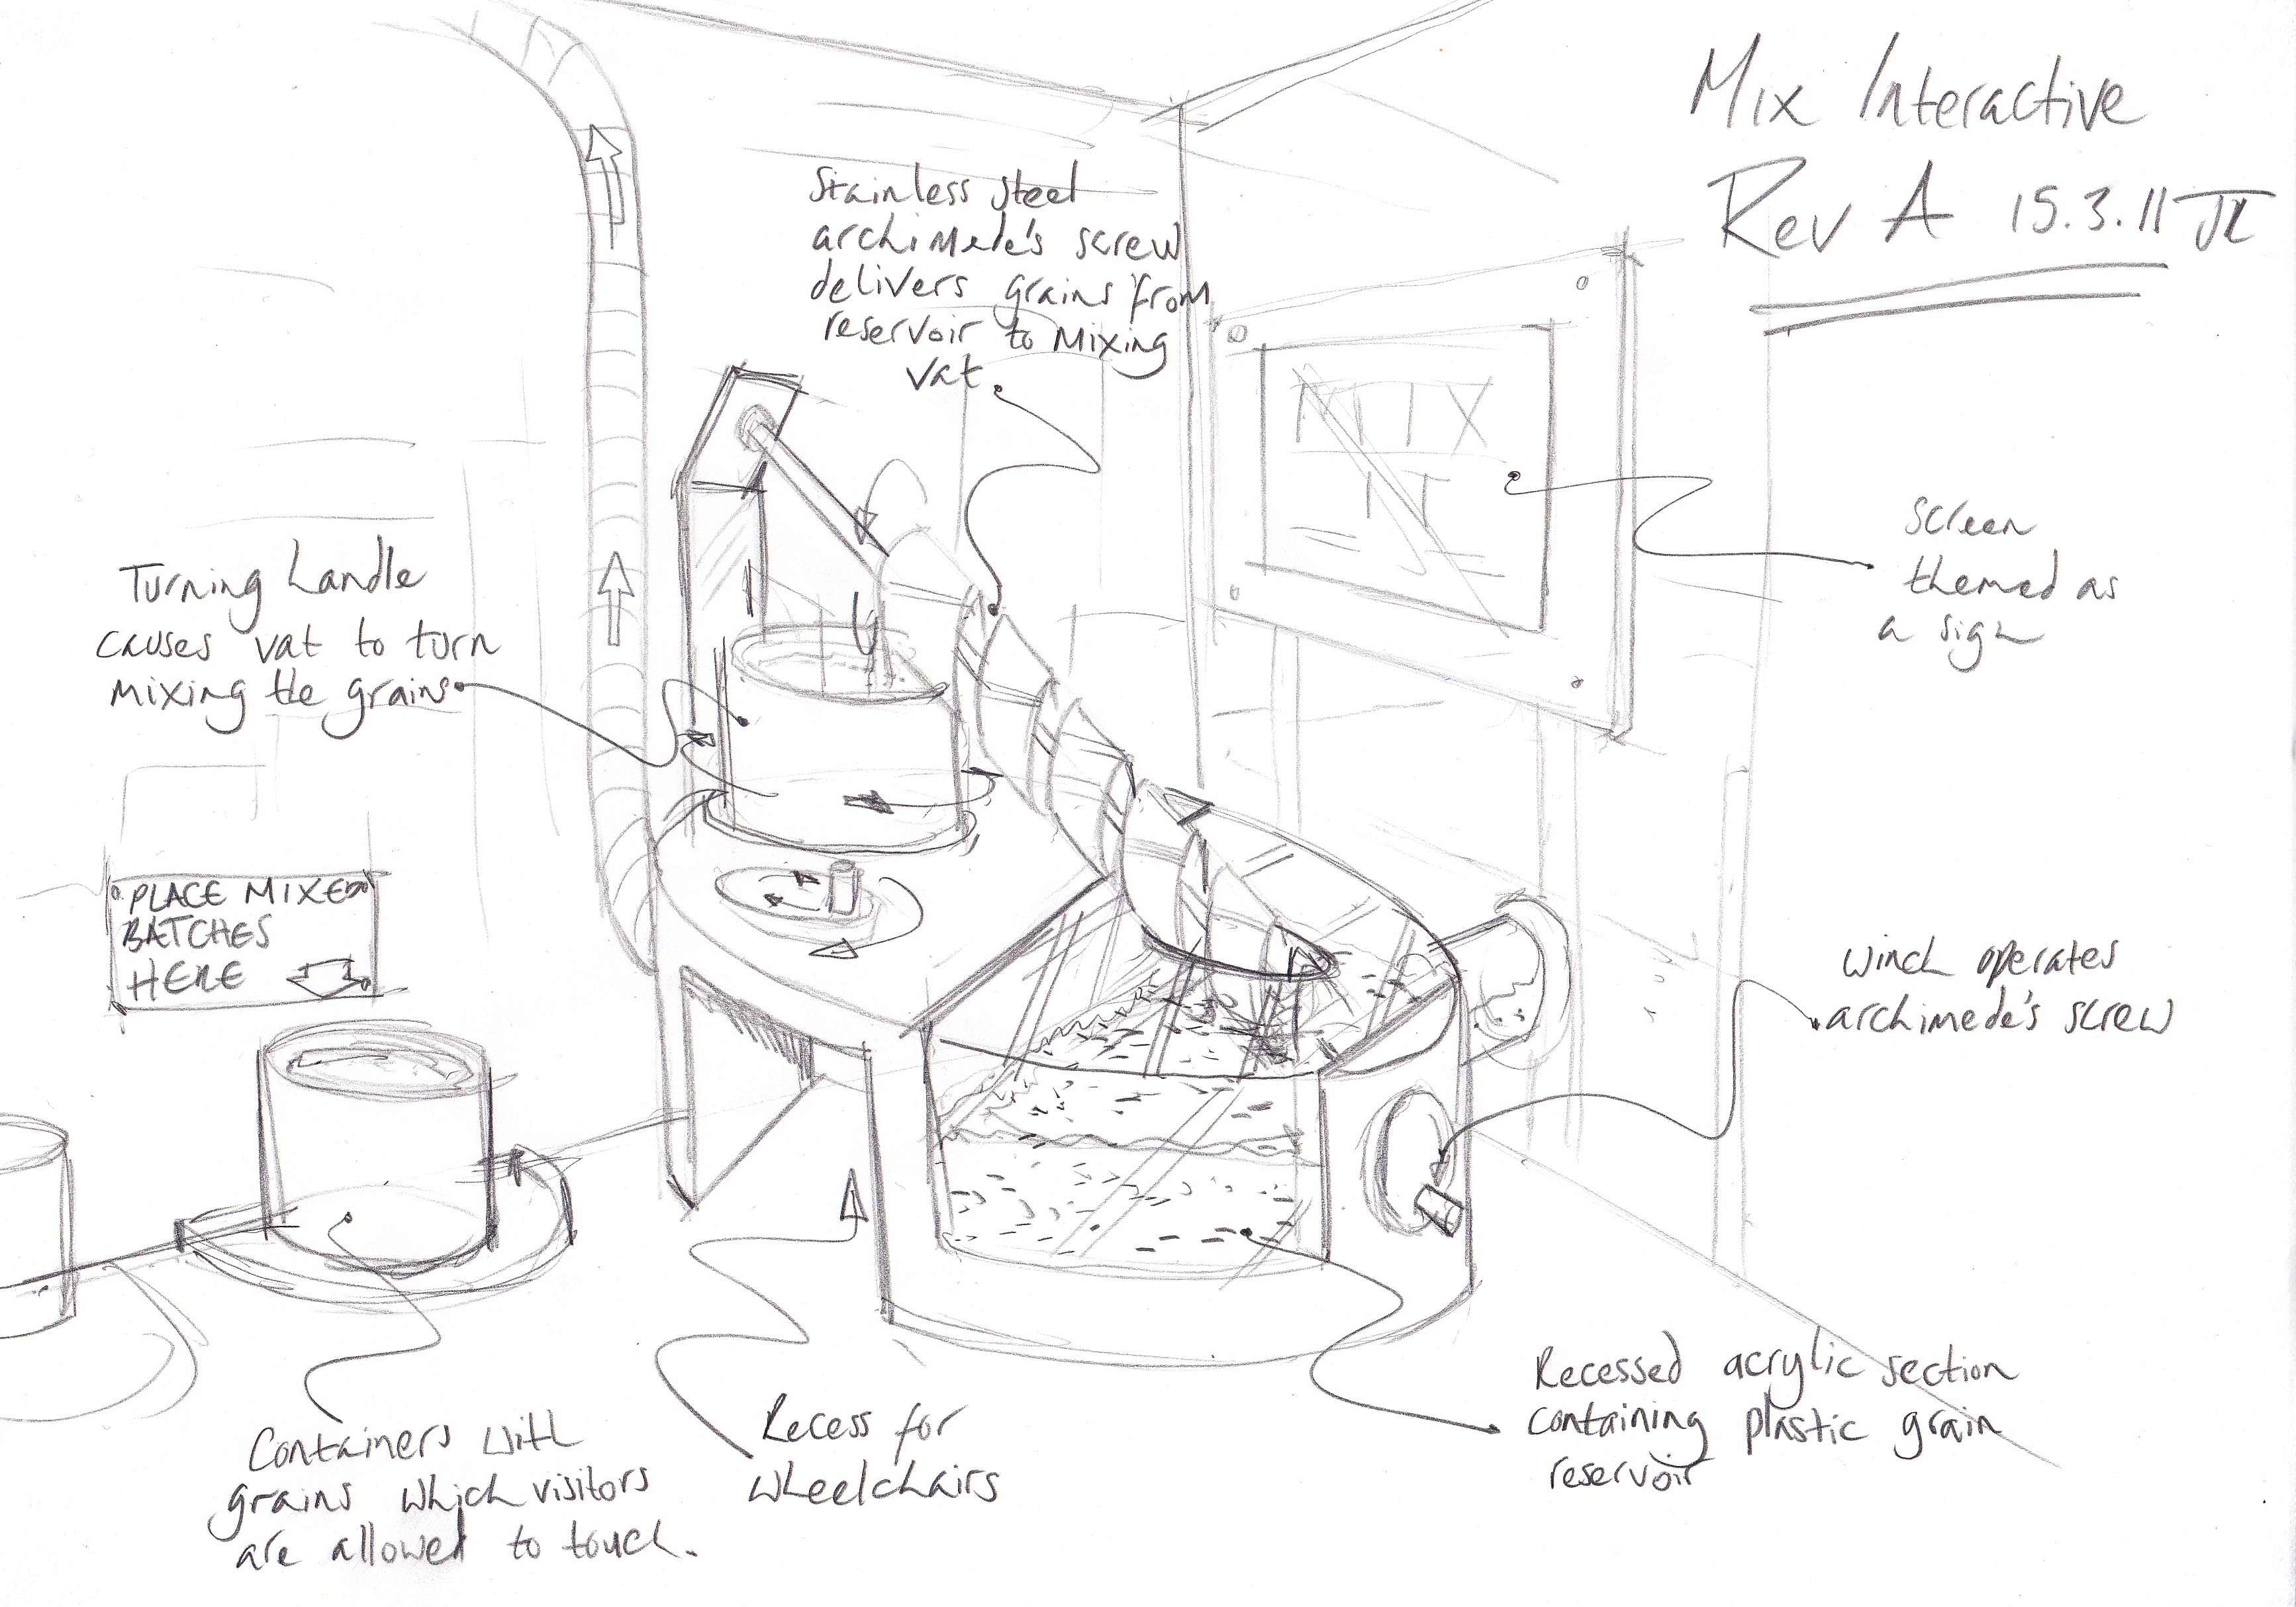 Mix Interactive
Rev A 15.3.11 JL
Stainless steel
archimede's screw
delivers grains from
reservoir to mixing
vat.
MIX
IT
Screen
themed as
a sign
Turning handle
causes vat to turn
mixing the grains
PLACE MIXED
BATCHES
HERE
winch operates
archimede's screw
Recessed acrylic section
containing plastic grain
reservoir
Recess for
wheelchairs
Containers with
grains which visitors
are allowed to touch.